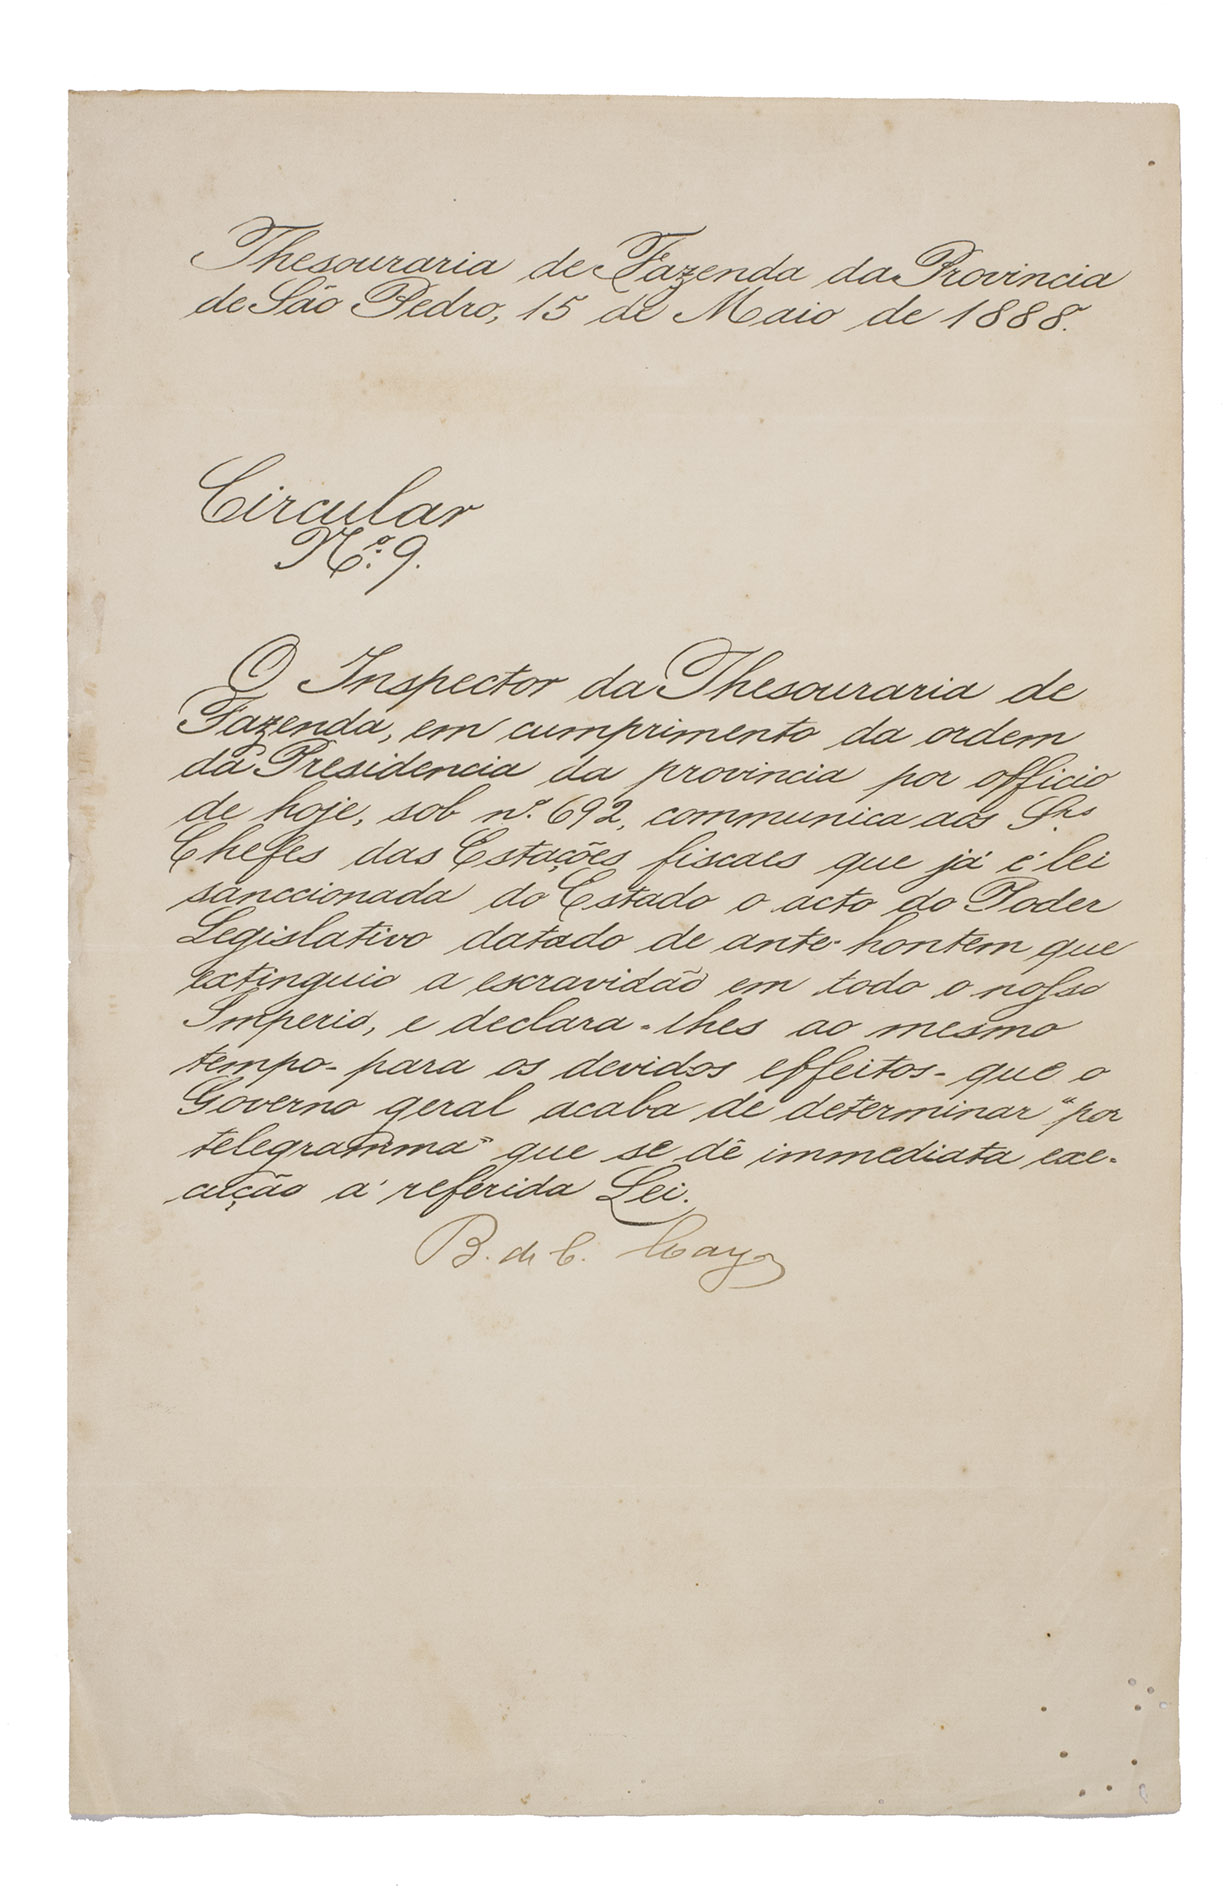 Thesouraria de Fazenda da Provincia
de São Pedro, 15 de Maio de 1888.
Circular
Nº. 9.
O Inspector da Thesouraria de
Fazenda, em cumprimento da ordem
da Presidencia da provincia por officio
de hoje, sob nº. 692, communica aos Srs
Chefes das Estações fiscaes que já é lei
sanccionada do Estado o acto do Poder
Legislativo datado de ante-hontem que
extinguio a escravidão em todo o nosso
Imperio, e declara-lhes ao mesmo
tempo - para os devidos effeitos - que o
Governo geral acaba de determinar "por
telegramma" que se dê immediata exe-
cução á referida Lei.
B. de C.